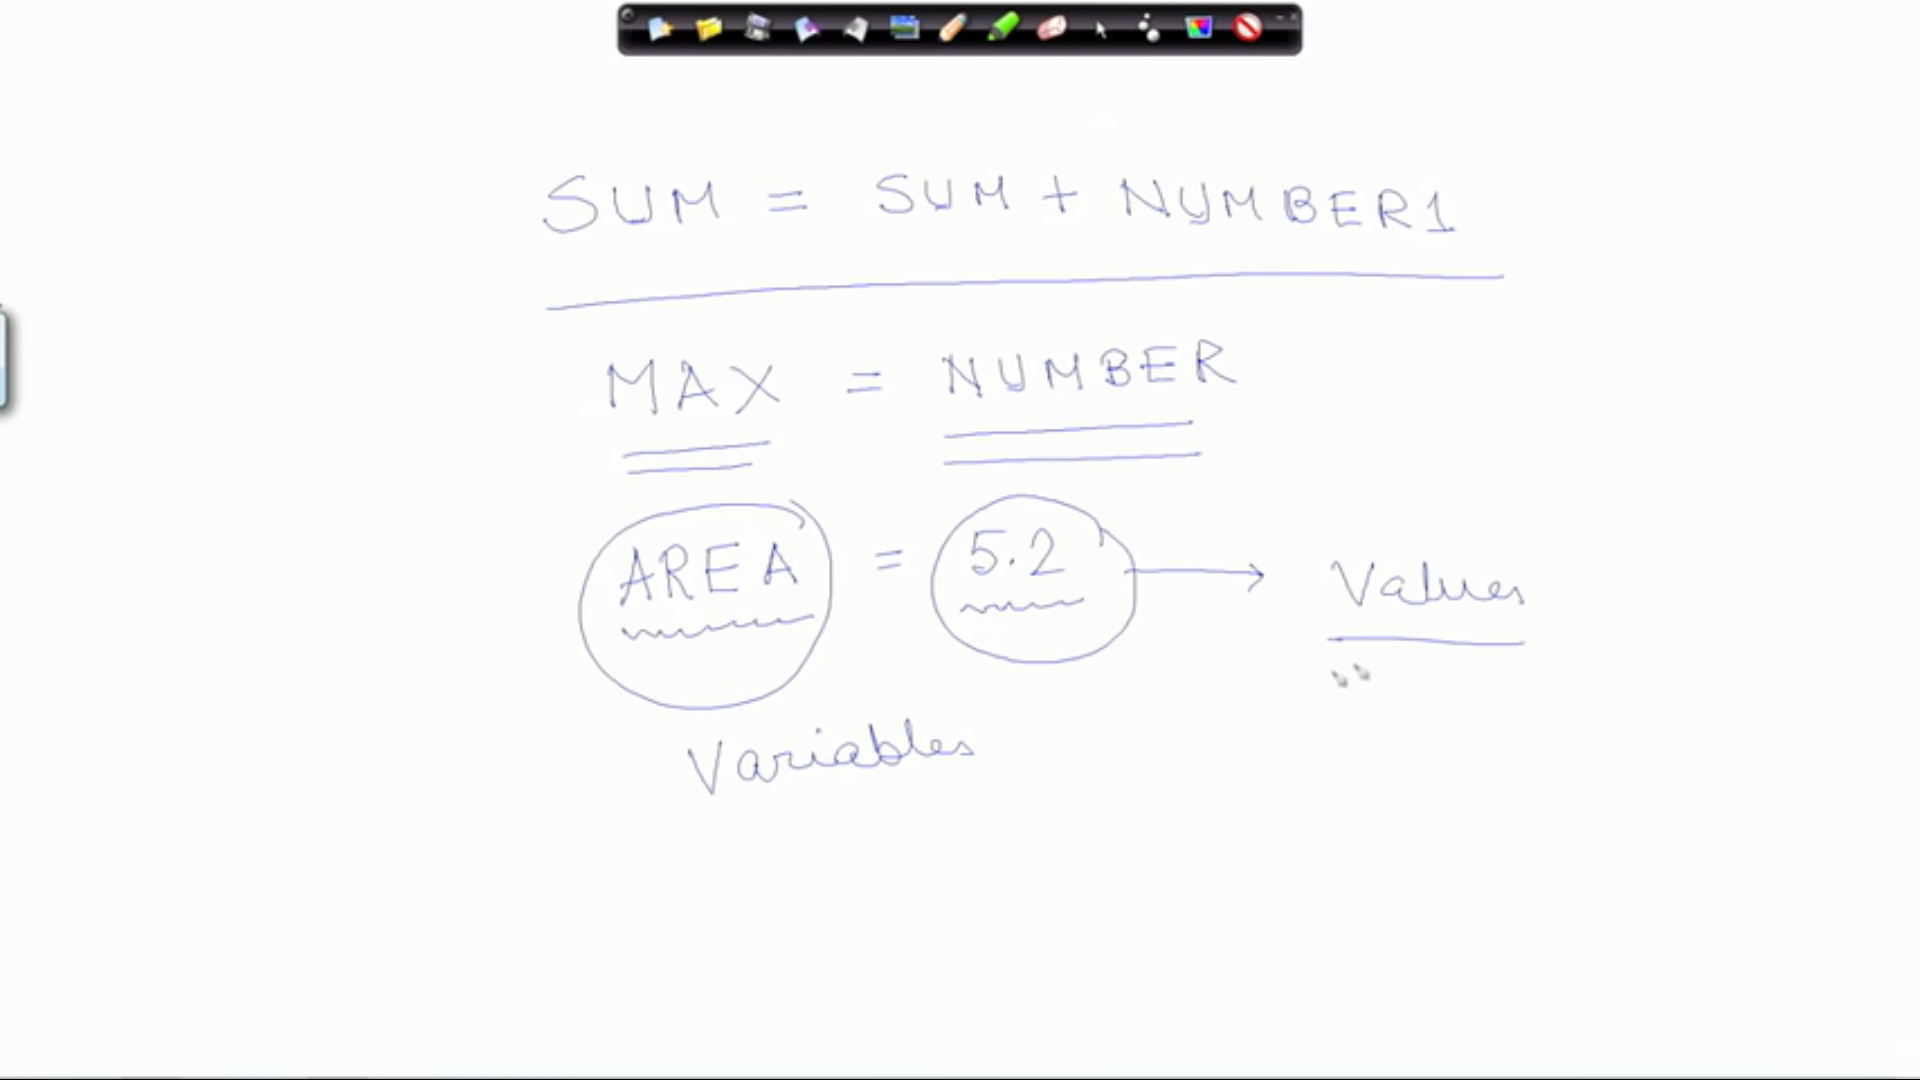 SUM = SUM + NUMBER1
MAX = NUMBER
AREA = 5.2 → Values
Variables